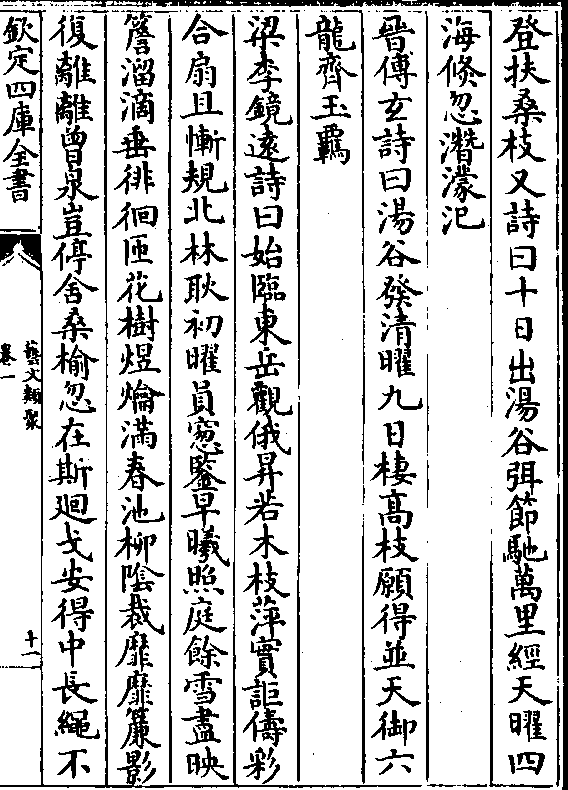 登扶桑枝又詩曰十日出湯谷弭節馳萬里經天曜四
海倐忽潛濛汜
晉傅玄詩曰湯谷發清曜九日棲高枝願得並天御六
龍齊玉羈
梁李鏡遠詩曰始臨東岳觀俄昇若木枝萍實詎儔彩
合扇且慚規北林耿初曜員窓鑒早曦照庭餘雪盡映
簷溜滴垂徘徊匝花樹煜爚滿春池柳陰裁靡靡簾影
復離離曾泉豈停舍桑榆忽在斯廻戈安得中長繩不
欽定四庫全書
藝文類聚
卷一
十二